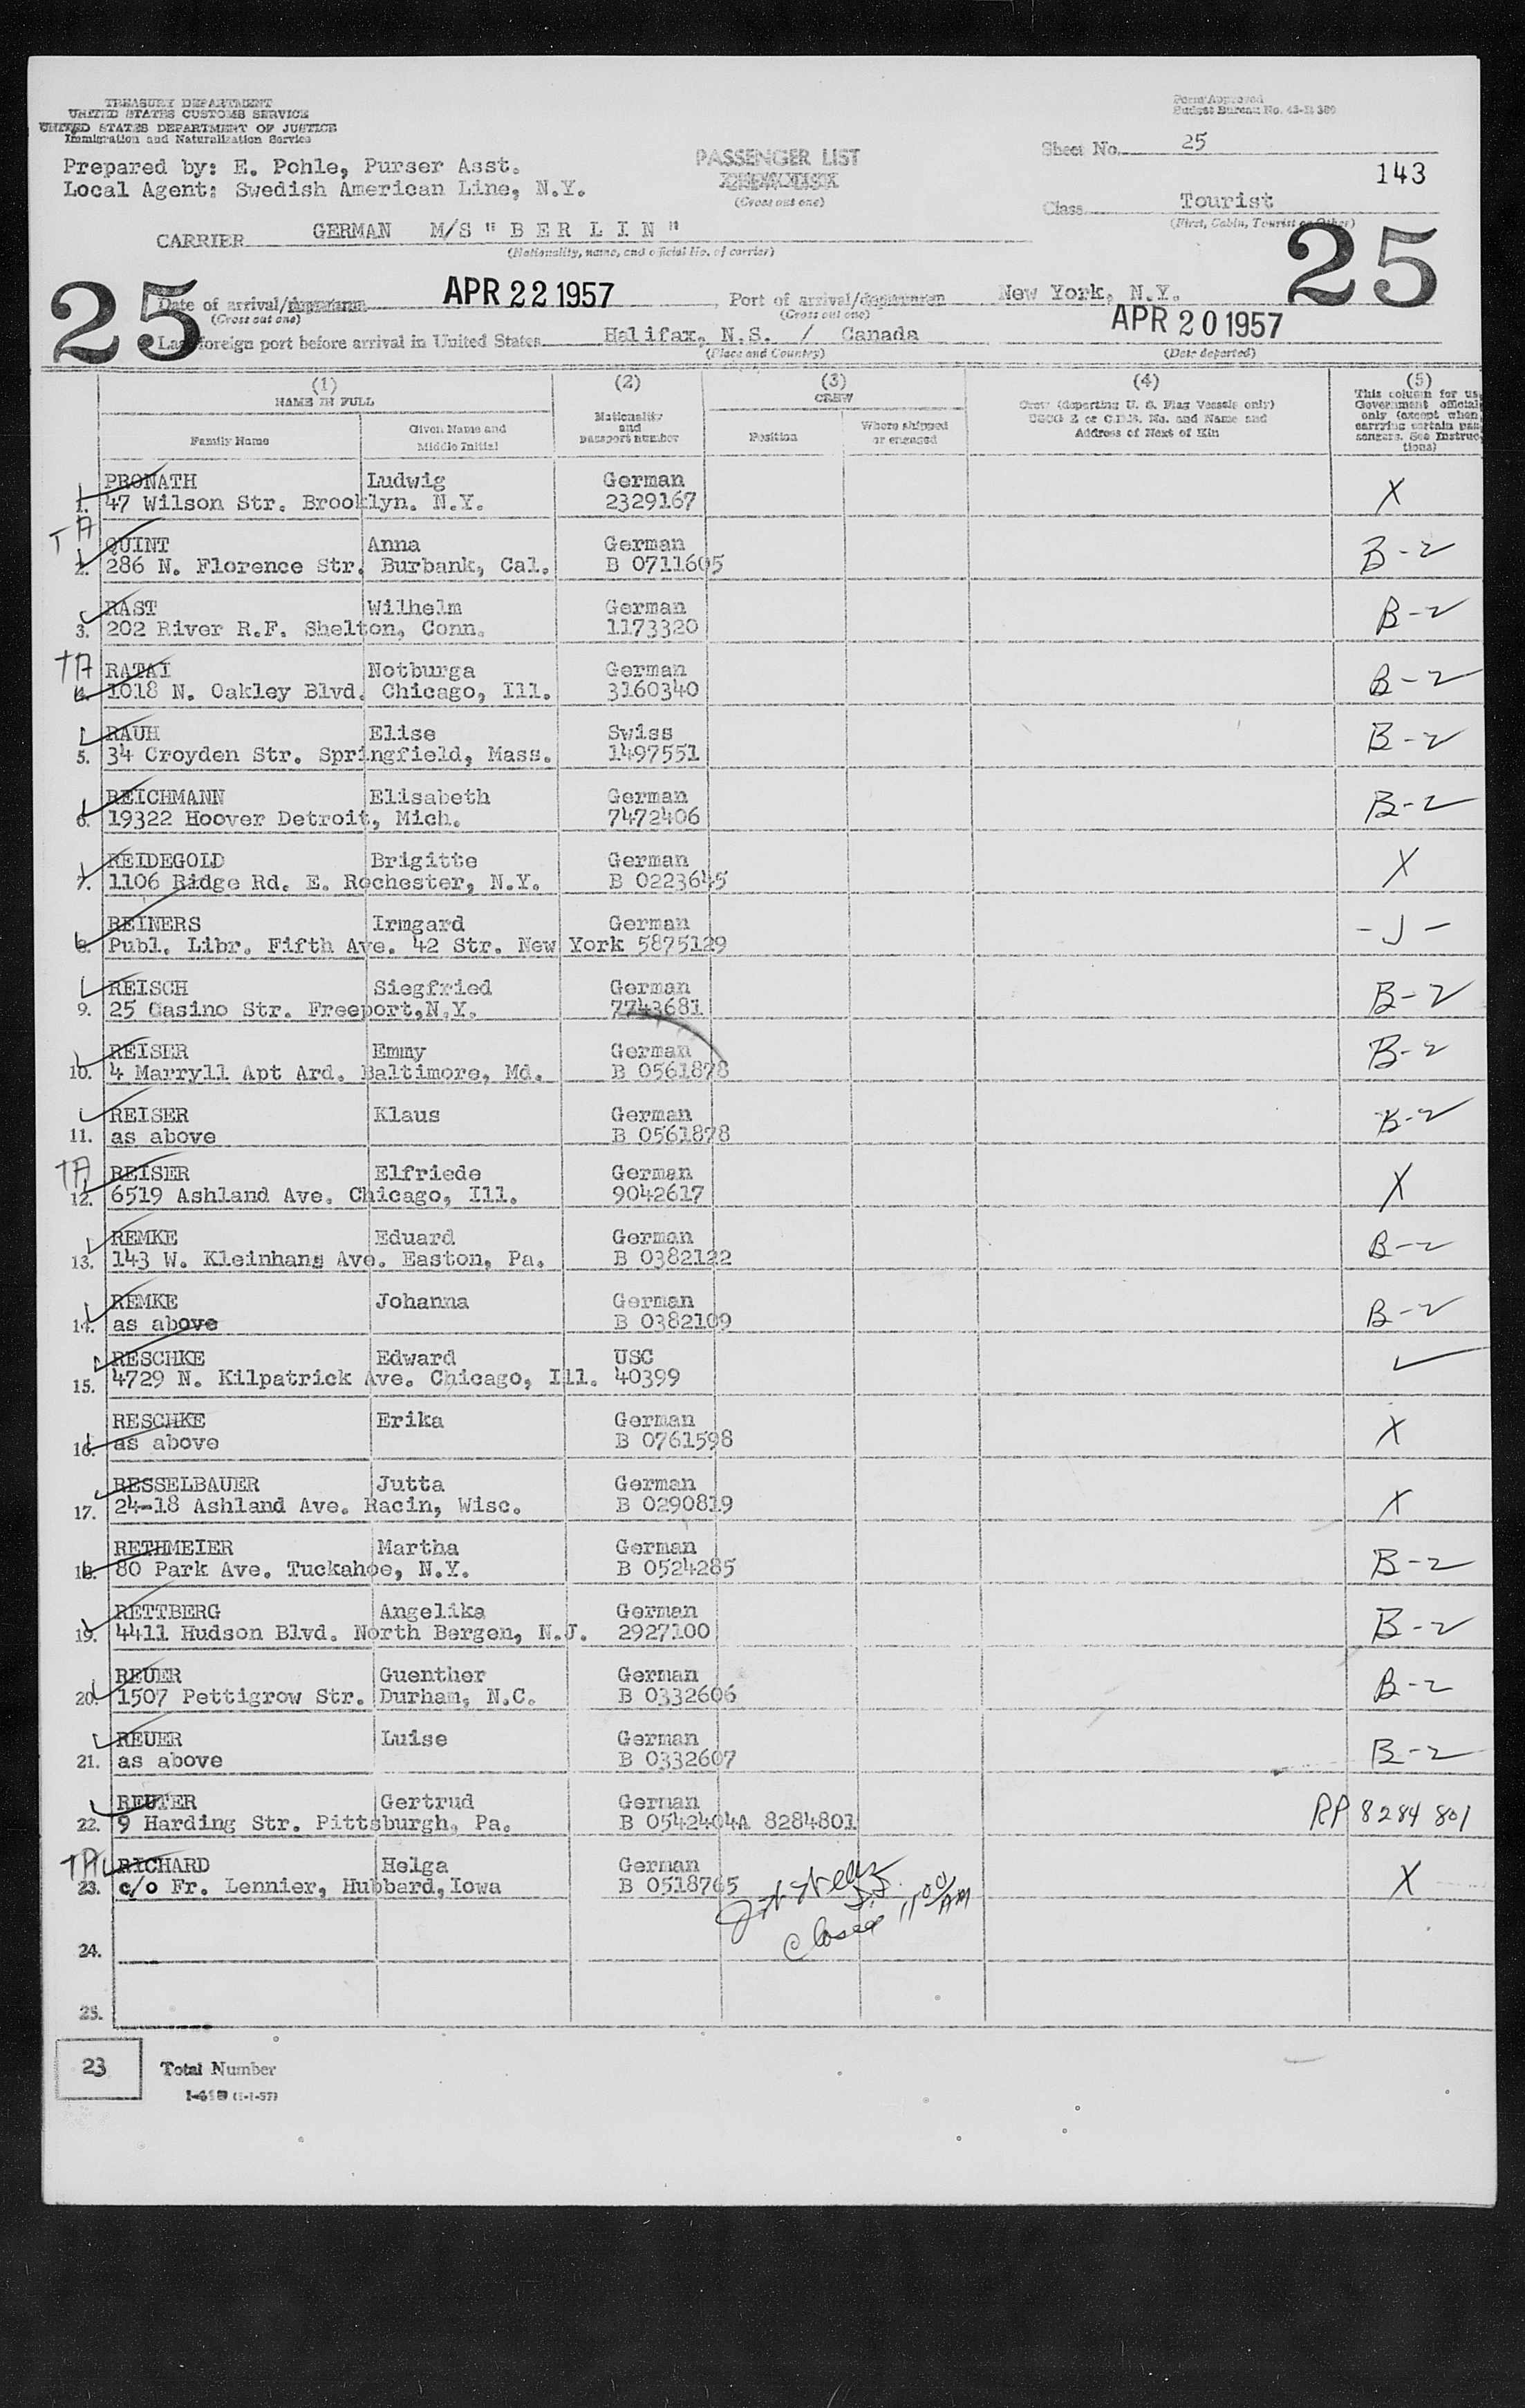 TREASURY DEPARTMENT
UNITED STATES CUSTOMS SERVICE
UNITED STATES DEPARTMENT OF JUSTICE
Immigration and Naturalization Service
Form Approved
Budget Bureau No. 43-R 389
Prepared by: E. Pohle, Purser Asst.
Local Agent: Swedish American Line, N.Y.
PASSENGER LIST
(Cross out one)
Sheet No. 25
143
Class Tourist
(First, Cabin, Tourist or Other)
CARRIER GERMAN M/S " B E R L I N "
(Nationality, name, and official No. of carrier)
25 25
Date of arrival/departure APR 22 1957 , Port of arrival/departure New York, N.Y.
(Cross out one) (Cross out one)
Last foreign port before arrival in United States Halifax, N.S. / Canada APR 20 1957
(Place and Country) (Date departed)
(1) NAME IN FULL
Family Name
Given Name and Middle Initial
(2) Nationality and passport number
(3) CREW
Position
Where shipped or engaged
(4) Crew (departing U. S. Flag Vessels only)
USCG Z or C.D.B. No. and Name and
Address of Next of Kin
(5) This column for use
Government official
only (except when
carrying certain pas
sengers. See Instruc
tions)
PRONATH Ludwig German
1. 47 Wilson Str. Brooklyn. N.Y. 2329167 X
TA QUINT Anna German
2. 286 N. Florence Str. Burbank, Cal. B 0711605 B-2
RAST Wilhelm German
3. 202 River R.F. Shelton, Conn. 1173320 B-2
TA RATAI Notburga German
4. 1018 N. Oakley Blvd. Chicago, Ill. 3160340 B-2
RAUH Elise Swiss
5. 34 Croyden Str. Springfield, Mass. 1497551 B-2
REICHMANN Elisabeth German
6. 19322 Hoover Detroit, Mich. 7472406 B-2
REIDEGOLD Brigitte German
7. 1106 Ridge Rd. E. Rochester, N.Y. B 0223645 X
REINERS Irmgard German
8. Publ. Libr. Fifth Ave. 42 Str. New York 5875129 - J -
REISCH Siegfried German
9. 25 Casino Str. Freeport,N.Y. 7743681 B-2
REISER Emmy German
10. 4 Marryll Apt Ard. Baltimore, Md. B 0561878 B-2
REISER Klaus German
11. as above B 0561878 B-2
TA REISER Elfriede German
12. 6519 Ashland Ave. Chicago, Ill. 9042617 X
REMKE Eduard German
13. 143 W. Kleinhans Ave. Easton, Pa. B 0382122 B-2
REMKE Johanna German
14. as above B 0382109 B-2
RESCHKE Edward USC
15. 4729 N. Kilpatrick Ave. Chicago, Ill. 40399 ✓
RESCHKE Erika German
16. as above B 0761598 X
RESSELBAUER Jutta German
17. 24-18 Ashland Ave. Racin, Wisc. B 0290819 X
RETHMEIER Martha German
18. 80 Park Ave. Tuckahoe, N.Y. B 0524285 B-2
RETTBERG Angelika German
19. 4411 Hudson Blvd. North Bergen, N.J. 2927100 B-2
REUER Guenther German
20. 1507 Pettigrow Str. Durham, N.C. B 0332606 B-2
REUER Luise German
21. as above B 0332607 B-2
REUTER Gertrud German
22. 9 Harding Str. Pittsburgh, Pa. B 0542404A 8284801 RP 8284 801
TA RICHARD Helga German
23. c/o Fr. Lennier, Hubbard,Iowa B 0518765 X
Closed 11 00 AM
24.
25.
23 Total Number
I-418 (1-1-57)